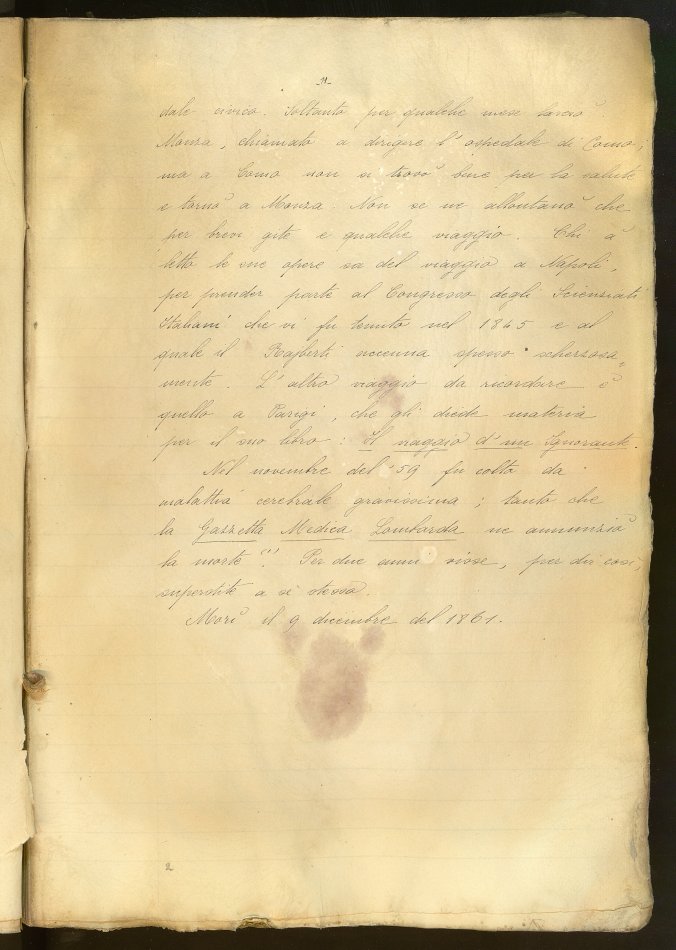 11
dale civico. Soltanto per qualche mese lasciò
Monza, chiamato a dirigere l'ospedale di Como;
ma a Como non si trovò bene per la salute
e tornò a Monza. Non se ne allontanò che
per brevi gite e qualche viaggio. Chi à
letto le sue opere sa del viaggio a Napoli,
per prender parte al Congresso degli Scienziati
Italiani che vi fu tenuto nel 1845 e al
quale il Rajberti accenna spesso scherzosa-
mente. L'altro viaggio da ricordare è
quello a Parigi, che gli diede materia
per il suo libro: Il viaggio d'un Ignorante.
Nel novembre del '59 fu colto da
malattia cerebrale gravissima; tanto che
la Gazzetta Medica Lombarda ne annunziò
la morte (1). Per due anni visse, per dir così,
superstite a sè stesso.
Morì il 9 dicembre del 1861.
2